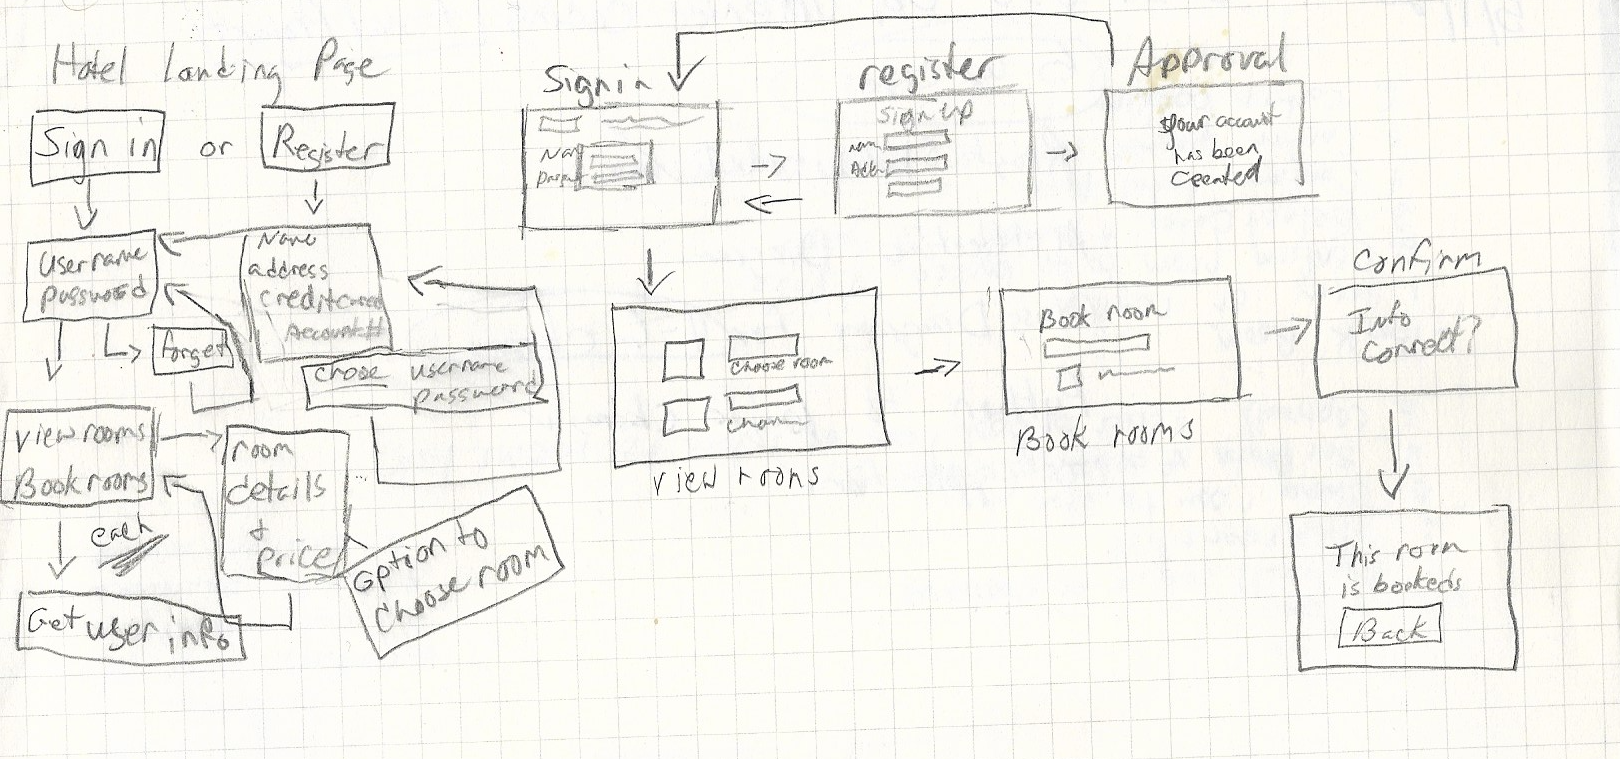 Hotel Landing Page
Sign in or Register
Username
password
forget
Name
address
Credit card
Account #
Chose username
password
View rooms
Book rooms
each
room
details
+
price
Option to
choose room
Get user info
Sign in
Nam
register
Sign up
nam
Approval
your account
has been
Created
choose room
View rooms
Book room
Book rooms
Confirm
Info
Correct?
This room
is booked
Back